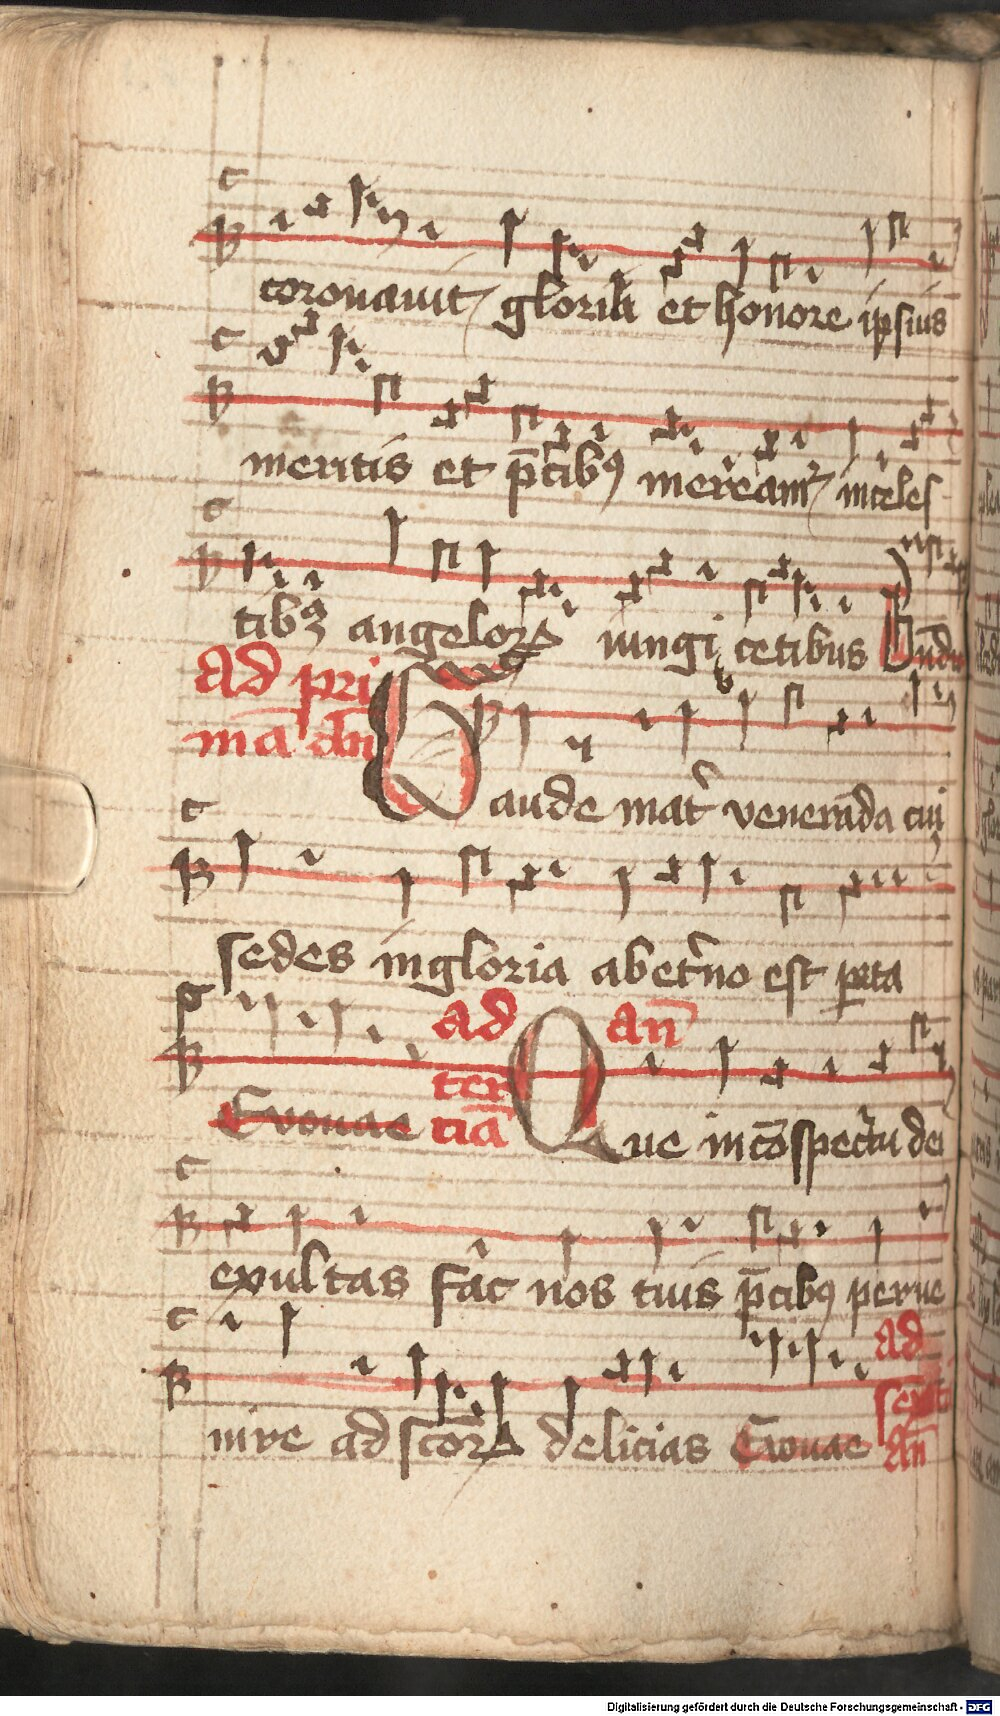 coronauit gloria et honore ipsius
meritis et p̄cibꝰ mereamᷣ in celes
tibꝫ angeloꝝ iungi cetibus
Ad pri
mā dm̄
Gaude mat̉ veneranda cuiꝰ
sedes in gloria ab et̉no est pata
ad an̄
ter
ciā
Euouae
Que in cōspectu dei
exultas fac nos tuis p̄cibꝰ perue
nire ad sc̄oꝝ delicias Euouae
ad
sext
An̄
Digitalisierung gefördert durch die Deutsche Forschungsgemeinschaft - DFG